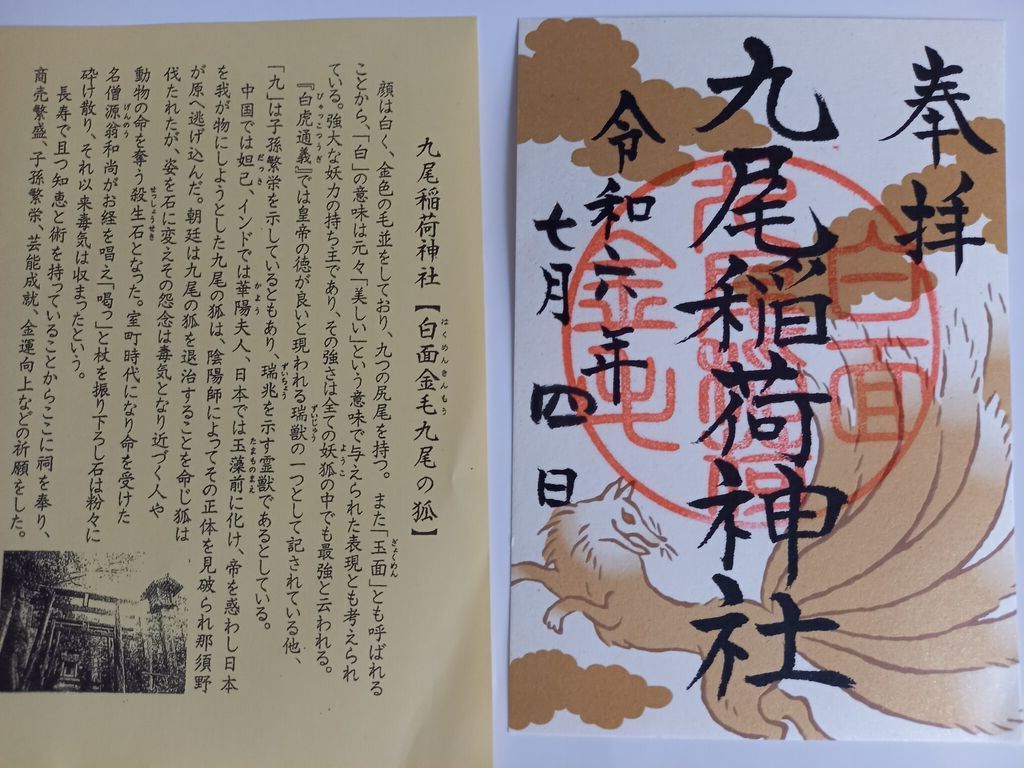 奉拝
九尾稲荷神社
令和六年
七月四日
白面
金毛
九尾稲荷神社【白面金毛九尾の狐】
はくめんきんもう
顔は白く、金色の毛並をしており、九つの尻尾を持つ。また「玉面」とも呼ばれる
ぎょくめん
ことから、「白」の意味は元々「美しい」という意味で与えられた表現とも考えられ
ている。強大な妖力の持ち主であり、その強さは全ての妖狐の中でも最強と云われる。
ようこ
『白虎通義』では皇帝の徳が良いと現われる瑞獣の一つとして記されている他、
びゃっこつうぎ
ずいじゅう
「九」は子孫繁栄を示しているともあり、瑞兆を示す霊獣であるとしている。
ずいちょう
中国では妲己、インドでは華陽夫人、日本では玉藻前に化け、帝を惑わし日本
だっき
かよう
たまものまえ
を我が物にしようとした九尾の狐は、陰陽師によってその正体を見破られ那須野
が原へ逃げ込んだ。朝廷は九尾の狐を退治することを命じ狐は
伐たれたが、姿を石に変えその怨念は毒気となり近づく人や
動物の命を奪う殺生石となった。室町時代になり命を受けた
せっしょうせき
名僧源翁和尚がお経を唱え「喝っ」と杖を振り下ろし石は粉々に
げんのう
砕け散り、それ以来毒気は収まったという。
長寿で且つ知恵と術を持っていることからここに祠を奉り、
商売繁盛、子孫繁栄、芸能成就、金運向上などの祈願をした。